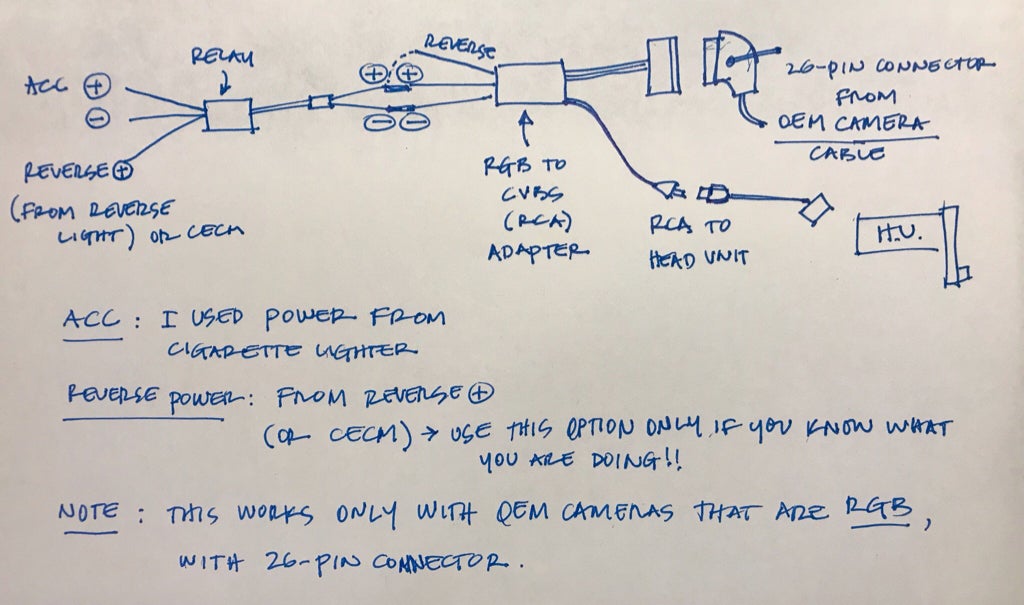 RELAY
REVERSE
ACC ⊕
⊖
REVERSE ⊕
(FROM REVERSE
LIGHT) OR CECM
⊕ ⊕
⊖ ⊖
RGB TO
CVBS
(RCA)
ADAPTER
26-PIN CONNECTOR
FROM
OEM CAMERA
CABLE
RCA TO
HEAD UNIT
H.U.
ACC : I USED POWER FROM
CIGARETTE LIGHTER
REVERSE POWER : FROM REVERSE ⊕
(OR CECM) → USE THIS OPTION ONLY IF YOU KNOW WHAT
YOU ARE DOING!!
NOTE : THIS WORKS ONLY WITH OEM CAMERAS THAT ARE RGB,
WITH 26-PIN CONNECTOR.